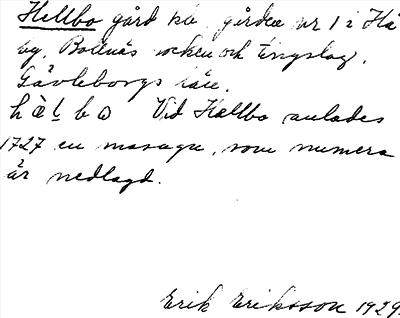 Hellbo gård bl. gården nr 1 i Hä
by, Bollnäs socken och tingslag,
Gävleborgs län.
hɛ̀lbɷ Vid Hällbo anlades
1727 en masugn, som numera
är nedlagd.
Erik Eriksson 1929.